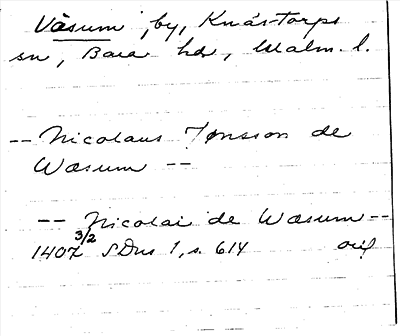 Väsum, by, Knästorps
sn, Bara hd, Malm. l.
-- Nicolaus Jonsson de
Wæsum --
-- Nicolai de Wæsum --
1407 3/2 SDns 1, s. 614